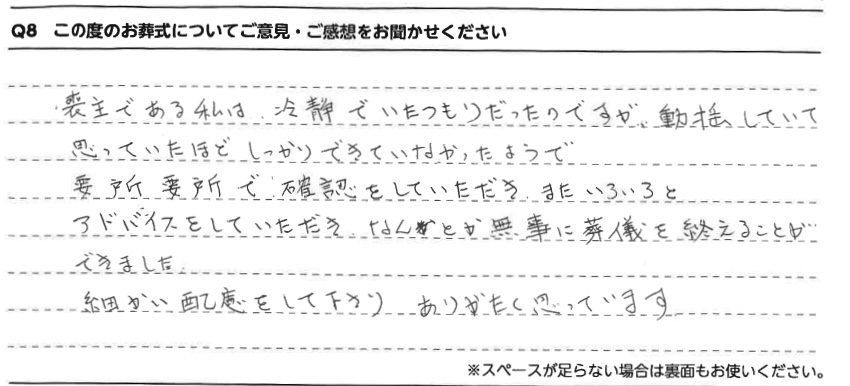 Q8 この度のお葬式についてご意見・ご感想をお聞かせください
喪主である私は、冷静でいたつもりだったのですが、動揺していて
思っていたほどしっかりできていなかったようで
要所要所で確認をしていただき、またいろいろと
アドバイスをしていただき、なんとか無事に葬儀を終えることが
できました。
細かい配慮をして下さり ありがたく思っています
※スペースが足らない場合は裏面もお使いください。